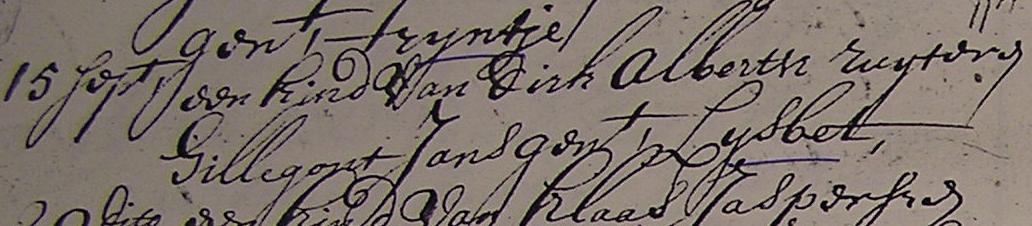 gent, Tryntje
15 Sept, een kind Van Dirk Alberts Ruyter en
Gillegont Jans gent, Lysbet,
20 dito een kind Van Klaas Jaspersz en